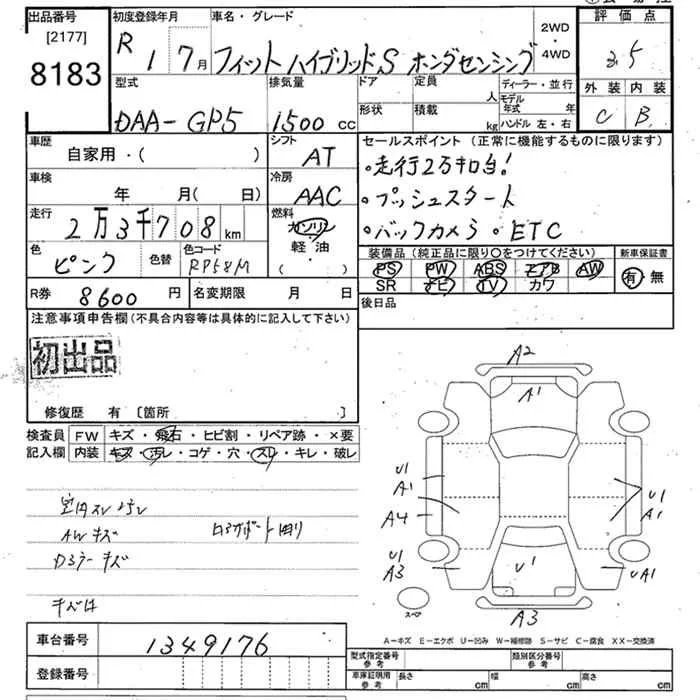 出品番号
[2177]
8183
初度登録年月
R 1 7月
車名・グレード
フィット ハイブリッドS ホンダセンシング
2WD
・
4WD
評価点
3.5
外装 内装
C B
型式
DAA-GP5
排気量
1500 cc
ドア
形状
定員
人
積載
kg
ディーラー・並行
モデル年式 年
ハンドル 左・右
車歴
自家用・( )
シフト
AT
車検
年 月(日)
冷房
AAC
走行
2万3千708km
燃料
ガソリン
軽油
・( )
色
ピンク
色替
色コード
RP58M
R券 8600円
名変期限 月 日
セールスポイント (正常に機能するものに限ります)
・走行2万キロ台!
・プッシュスタート
・バックカメラ ・ETC
装備品 (純正品に限り○をつけてください)
PS PW ABS エアB AW
SR ナビ TV カワ
新車保証書
有 無
後日品
注意事項申告欄(不具合内容等は具体的に記入して下さい)
初出品
修復歴 有 [箇所 ]
検査員
記入欄
FW キズ・飛石・ヒビ割・リペア跡・×要
内装 キズ・汚レ・コゲ・穴・スレ・キレ・破レ
室内スレ汚レ
AWキズ
Dミラーキズ
A2
A1
U1
A1
A4
U1
A1
U1
A3
U1
UA1
スペア
A3
A-キズ E-エクボ U-凹み W-補修跡 S-サビ C-腐食 XX-交換済
車台番号 1349176
登録番号
型式指定番号
参考
類別区分番号
参考
車庫証明用
参考
長さ cm 幅 cm 高さ cm